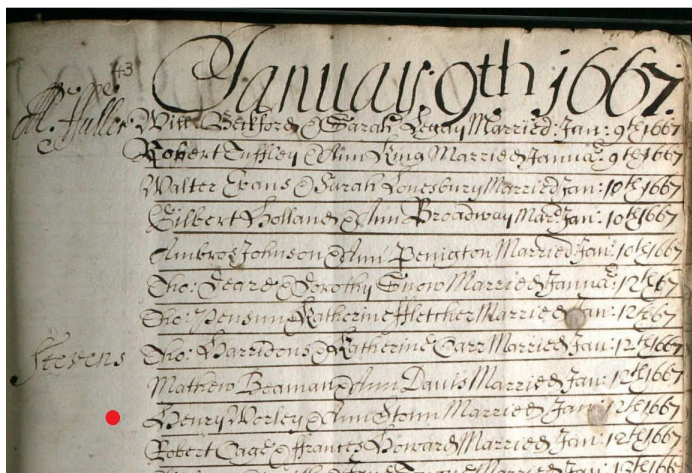 43
January 9th 1667
Will Beckford & Sarah Married: Jan: 9th 1667
Robert Tuffley & Ann King Married Janua: 9th 1667
Walter Evans & Sarah Lonesbury Married Jan: 10th 1667
Gilbert Holland & Ann Broadway Mard Jan: 10th 1667
Ambros Johnson & Ann Penigton Married Jan: 10th 1667
Tho: & Dorothy Snow Married Janua: 12th 67
Tho: Katherine ffletcher Married Jan: 12th 1667
Stevens Tho: & Katherine Carr Married Jan: 12th 1667
Mathew Beaman & Ann Davis Married Jan: 12th 1667
Henry Worley & Ann Married Jan: 12th 1667
Robert Cage & ffrances Howard Married Jan: 12th 1667